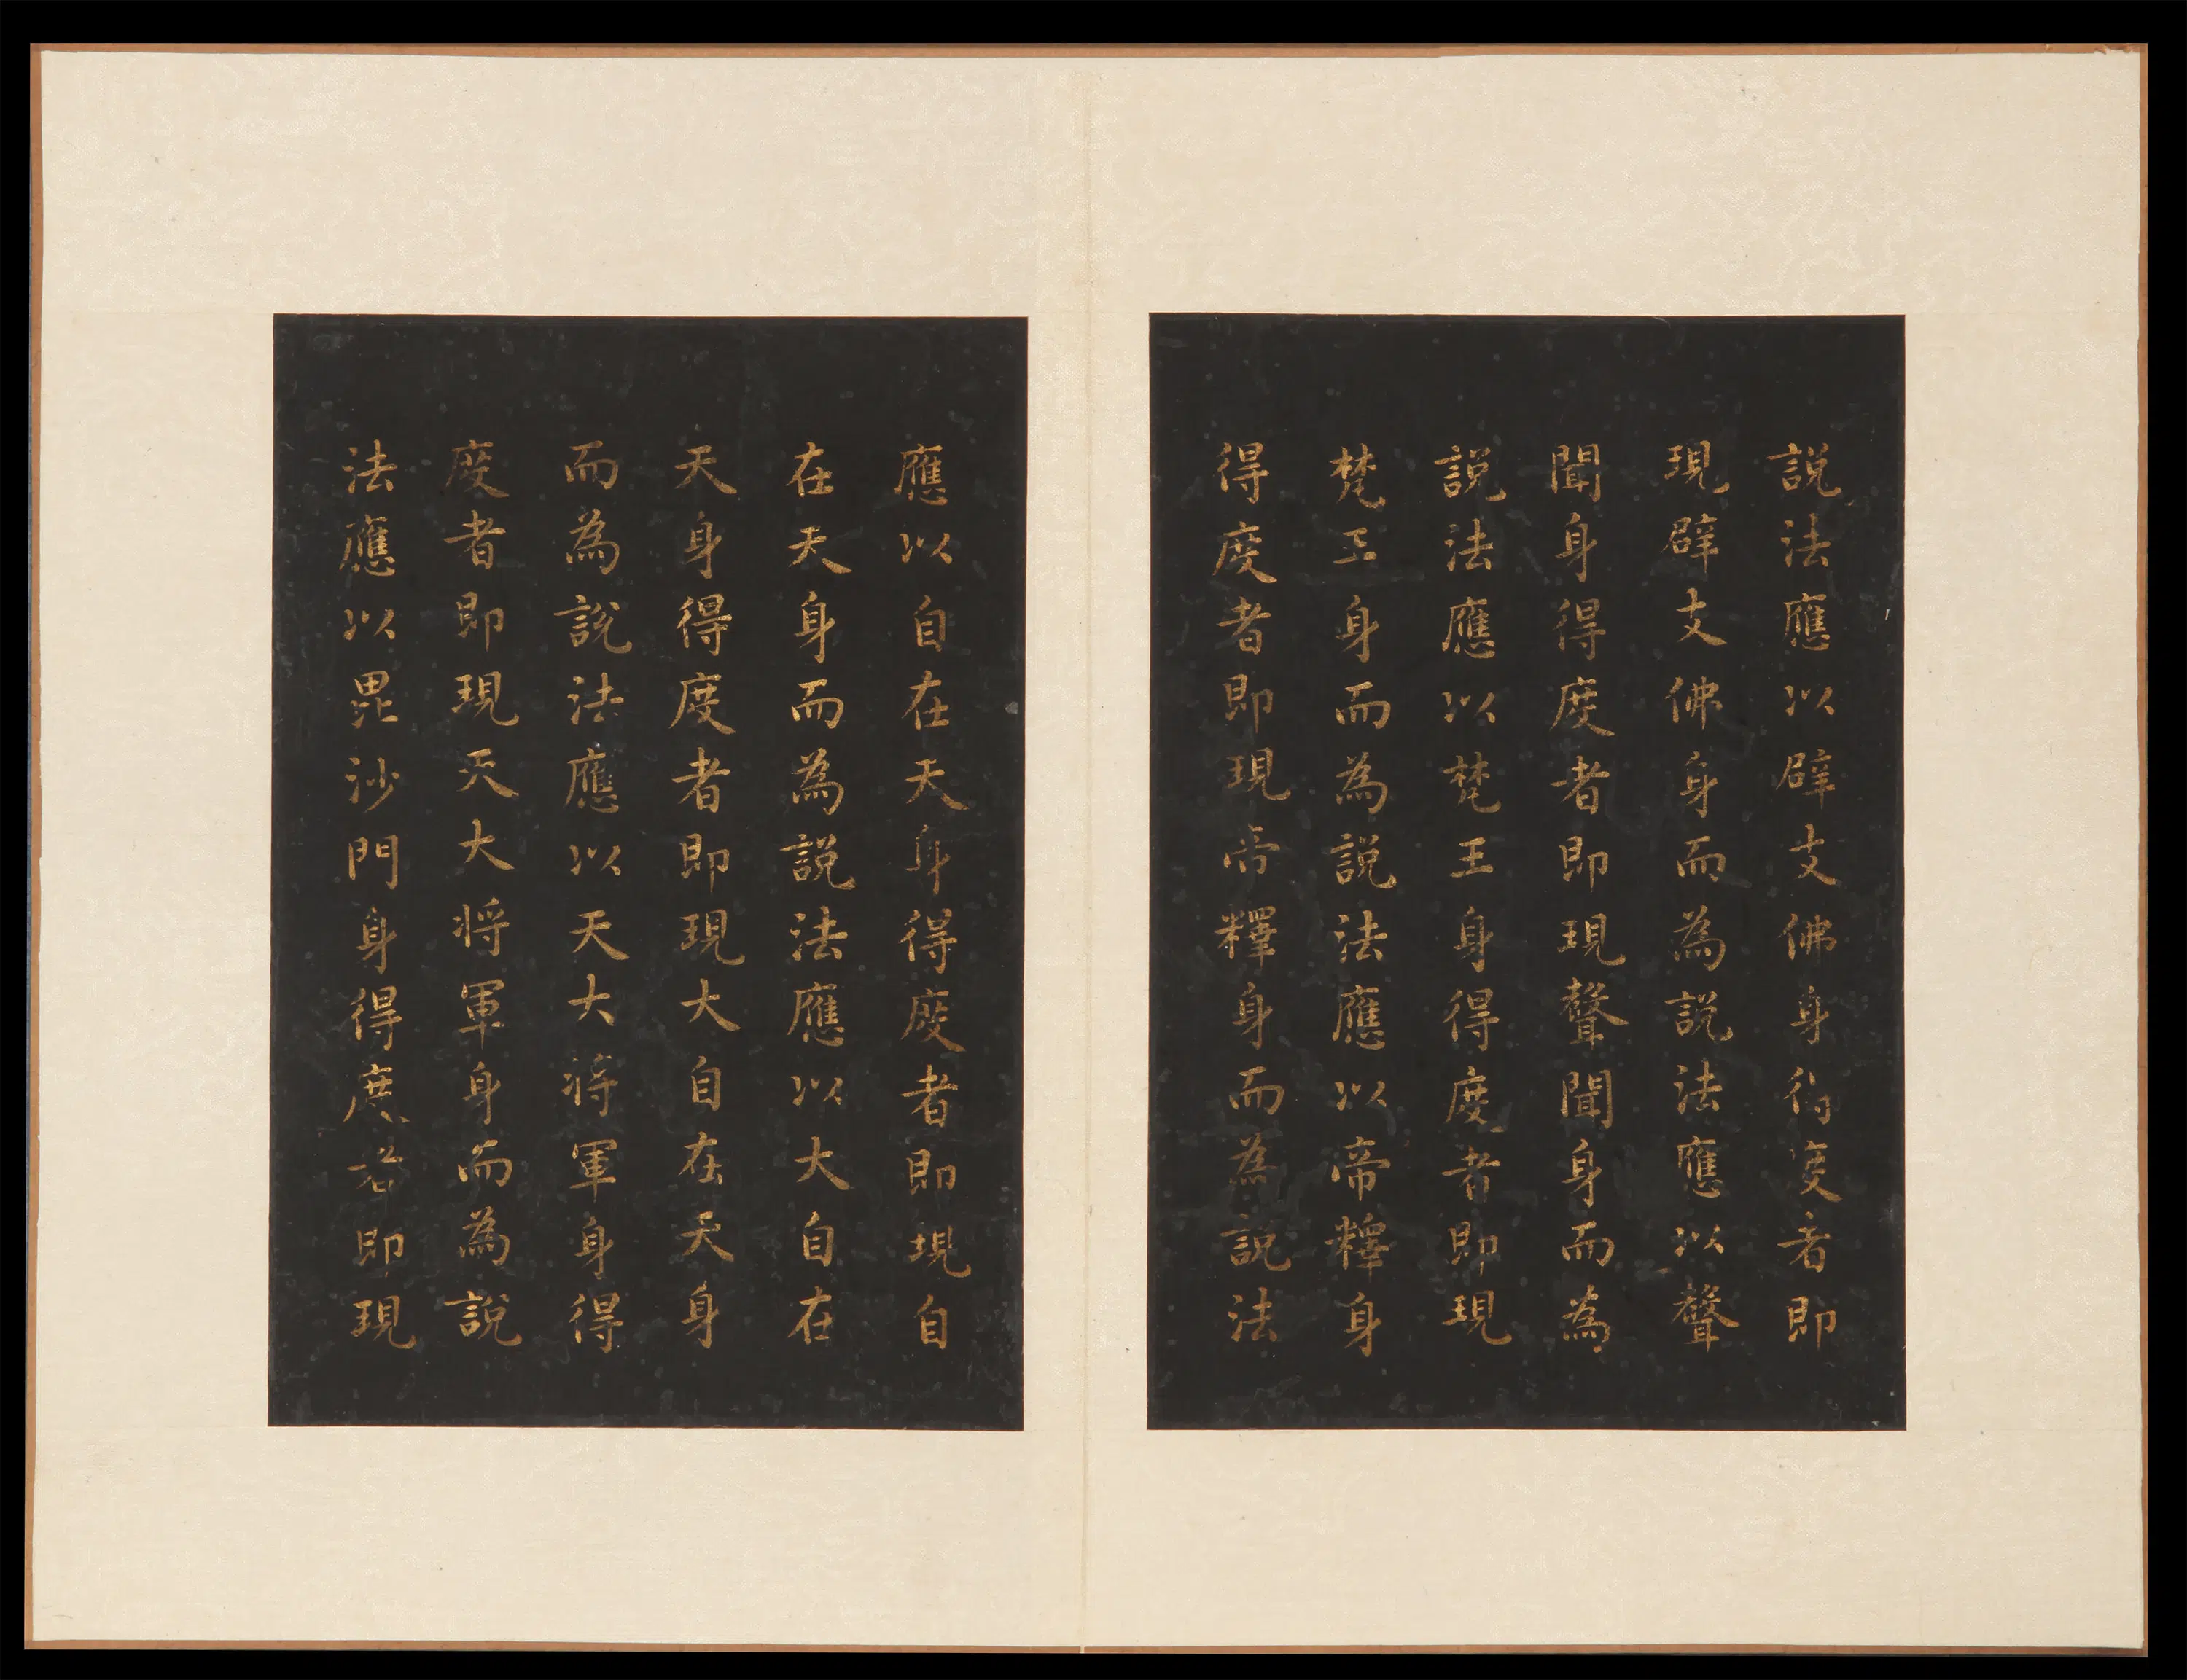 説法應以辟支佛身得度者即
現辟支佛身而為説法應以聲
聞身得度者即現聲聞身而為
説法應以梵王身得度者即現
梵王身而為説法應以帝釋身
得度者即現帝釋身而為説法
應以自在天身得度者即現自
在天身而為説法應以大自在
天身得度者即現大自在天身
而為說法應以天大將軍身得
度者即現天大将軍身而為說
法應以毘沙門身得度者即現